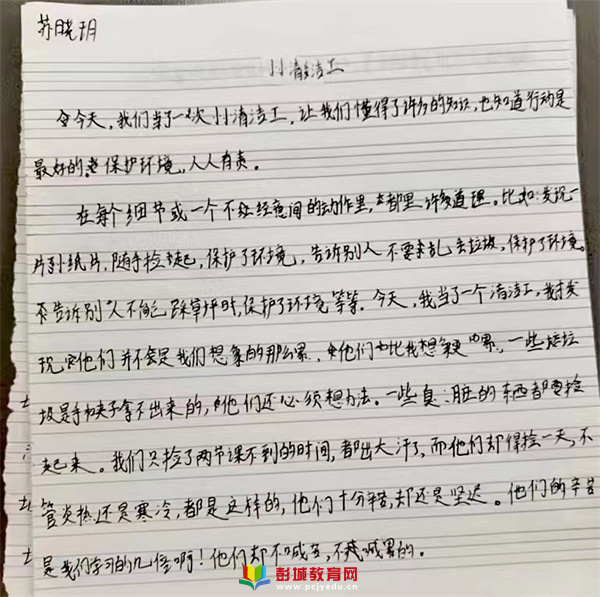 苏晓玥
小清洁工
今天，我们当了一次小清洁工，让我们懂得了许多的知识，也知道行动是
最好的老 保护环境，人人有责。
在每个细节或一个不经意间的动作里，都是许多道理。比如：发现一
片小纸片，随手捡起，保护了环境，告诉别人不要乱丢垃圾，保护了环境。
告诉别人不能踩草坪时，保护了环境等等。今天，我当了一个清洁工，我才发
现他们并不是我们想象的那么累，他们比我想象更累，一些垃
圾是手和夹子拿不出来的，他们还必须想办法。一些臭、脏的东西都要捡
起来。我们只捡了两节课不到的时间，都出大汗了，而他们却得捡一天，不
管炎热还是寒冷，都是这样的，他们十分辛苦，却还是坚迟。他们的辛苦
是我们学习的几倍啊！他们却不喊苦，不喊累的。
彭城教育网
www.pcjyedu.cn